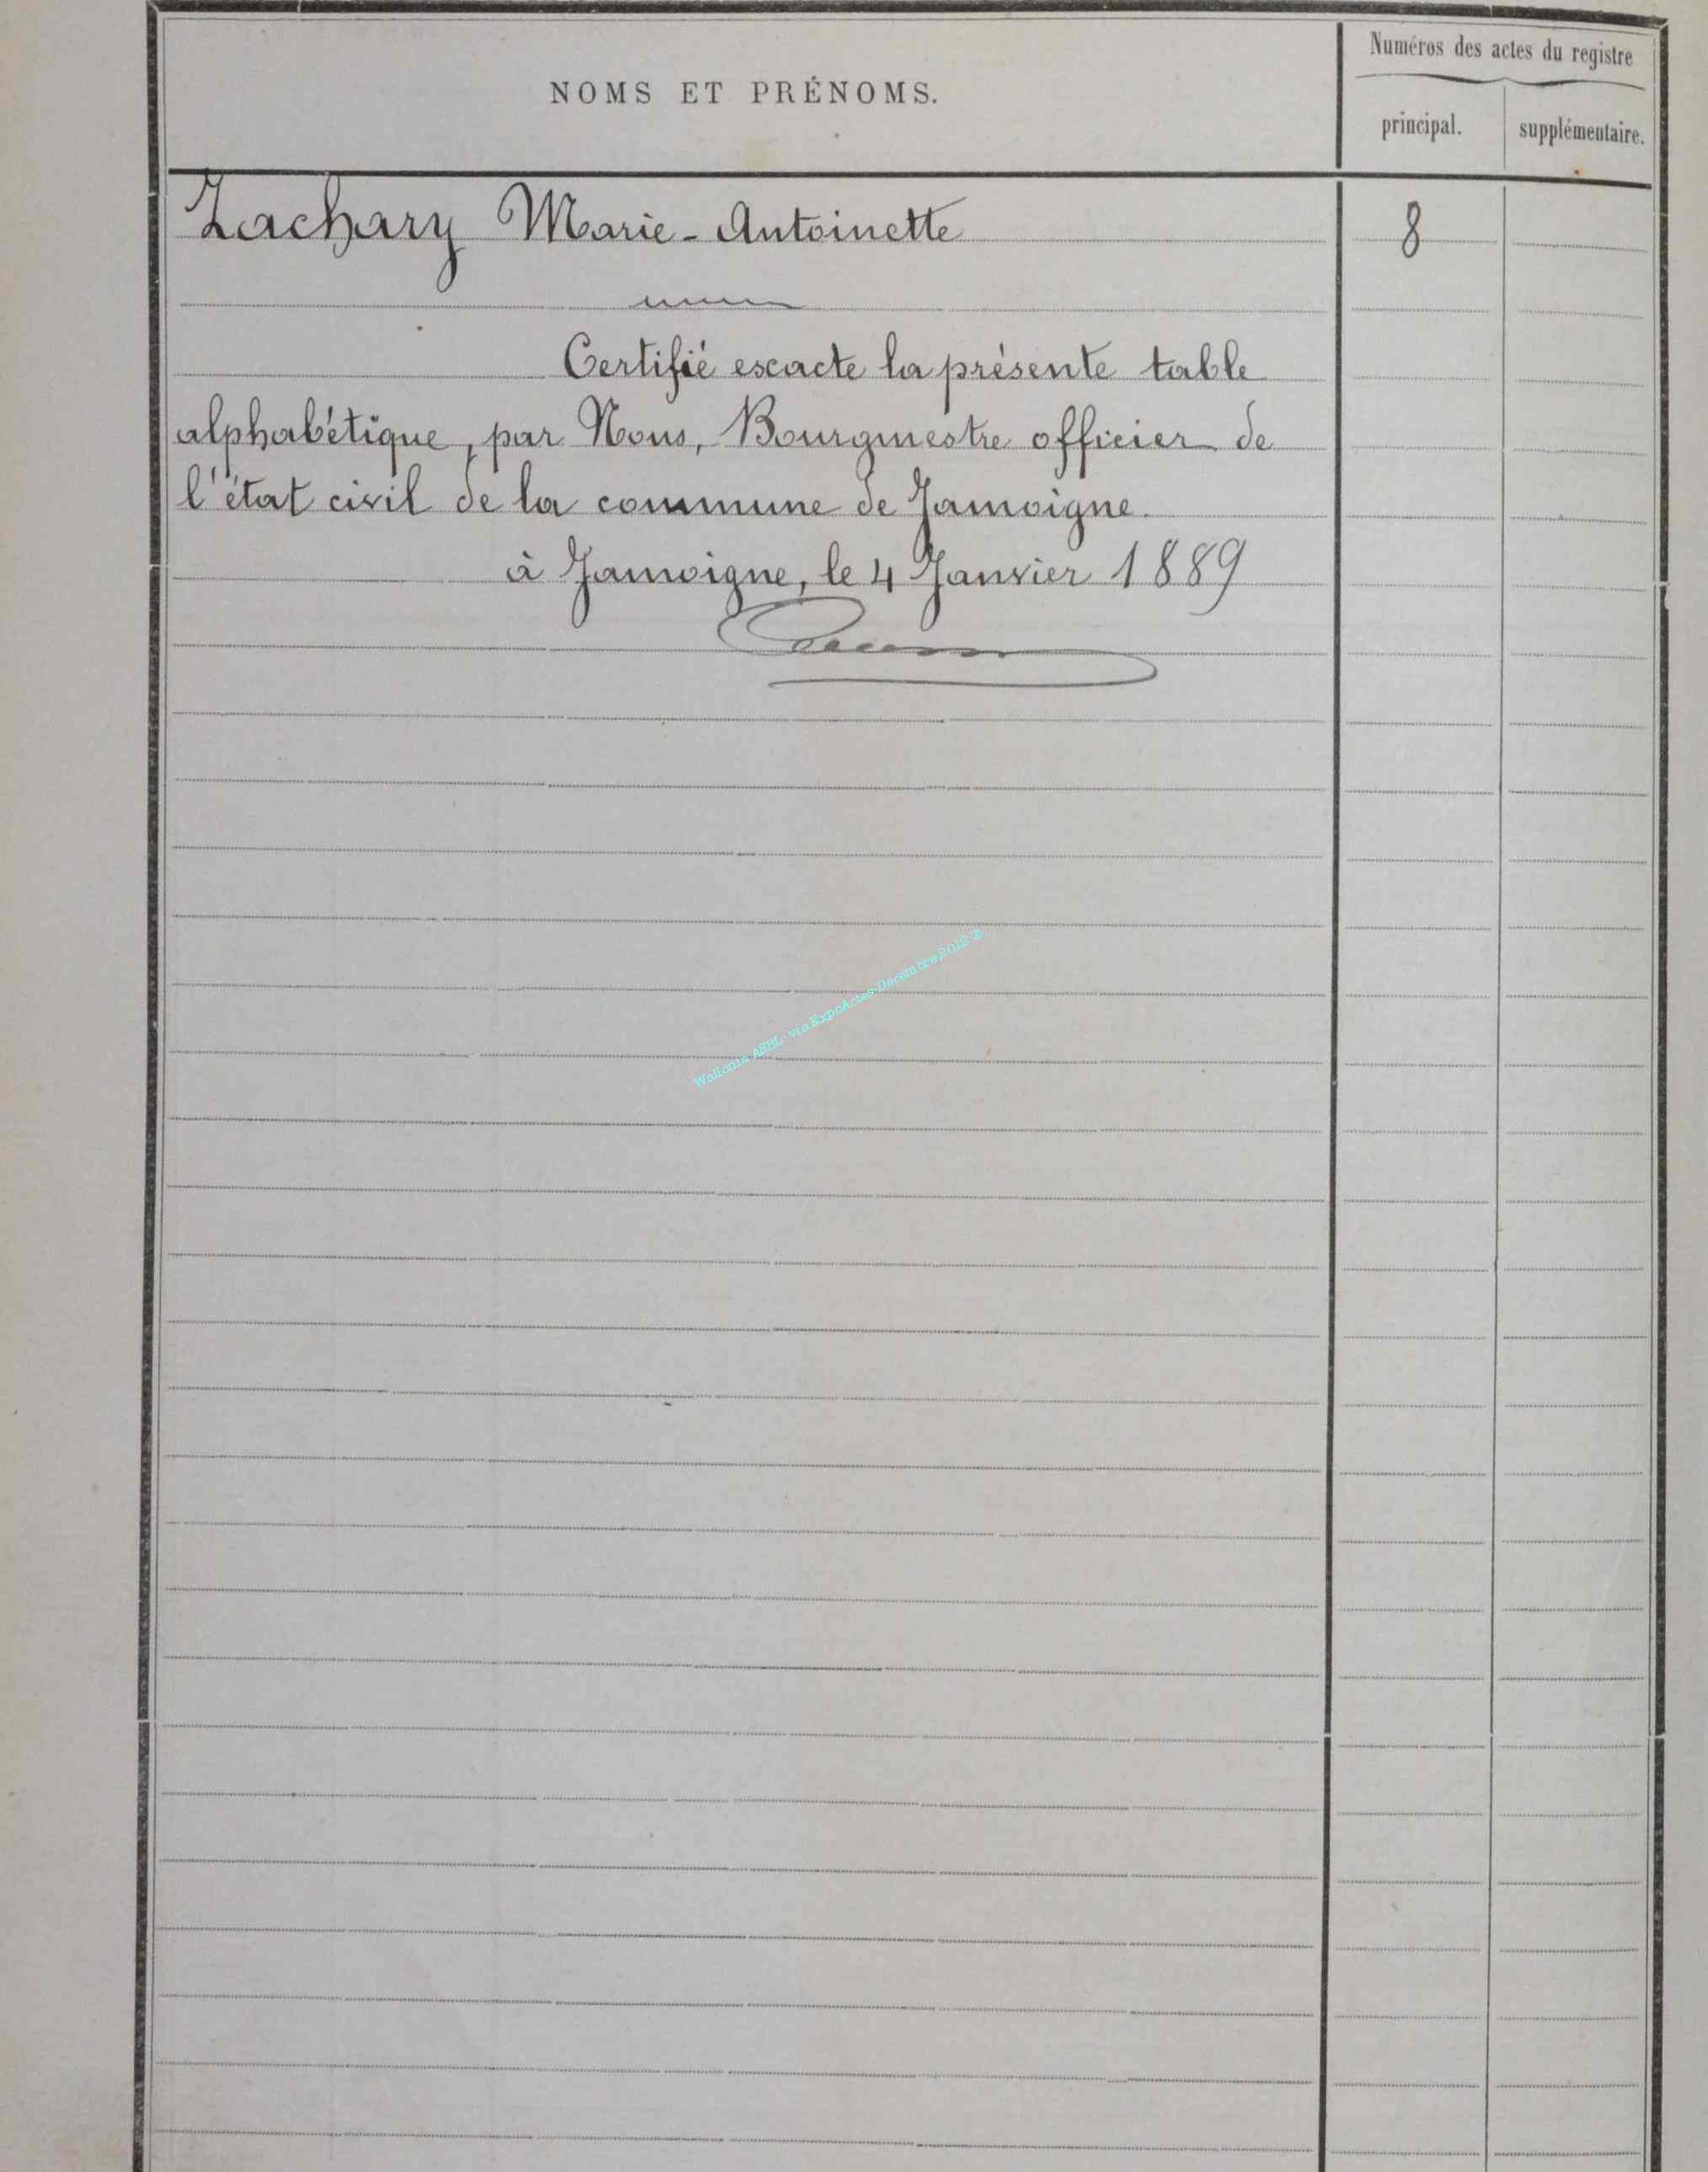 NOMS ET PRÉNOMS.
Numéros des actes du registre
principal.
supplémentaire.
Zachary Marie-Antoinette 8
Certifié exacte la présente table
alphabétique, par Nous, Bourgmestre officier de
l'état civil de la commune de Jamoigne.
à Jamoigne, le 4 Janvier 1889
Wallonia ASBL via ExpoActes-Decembre 2012 ©